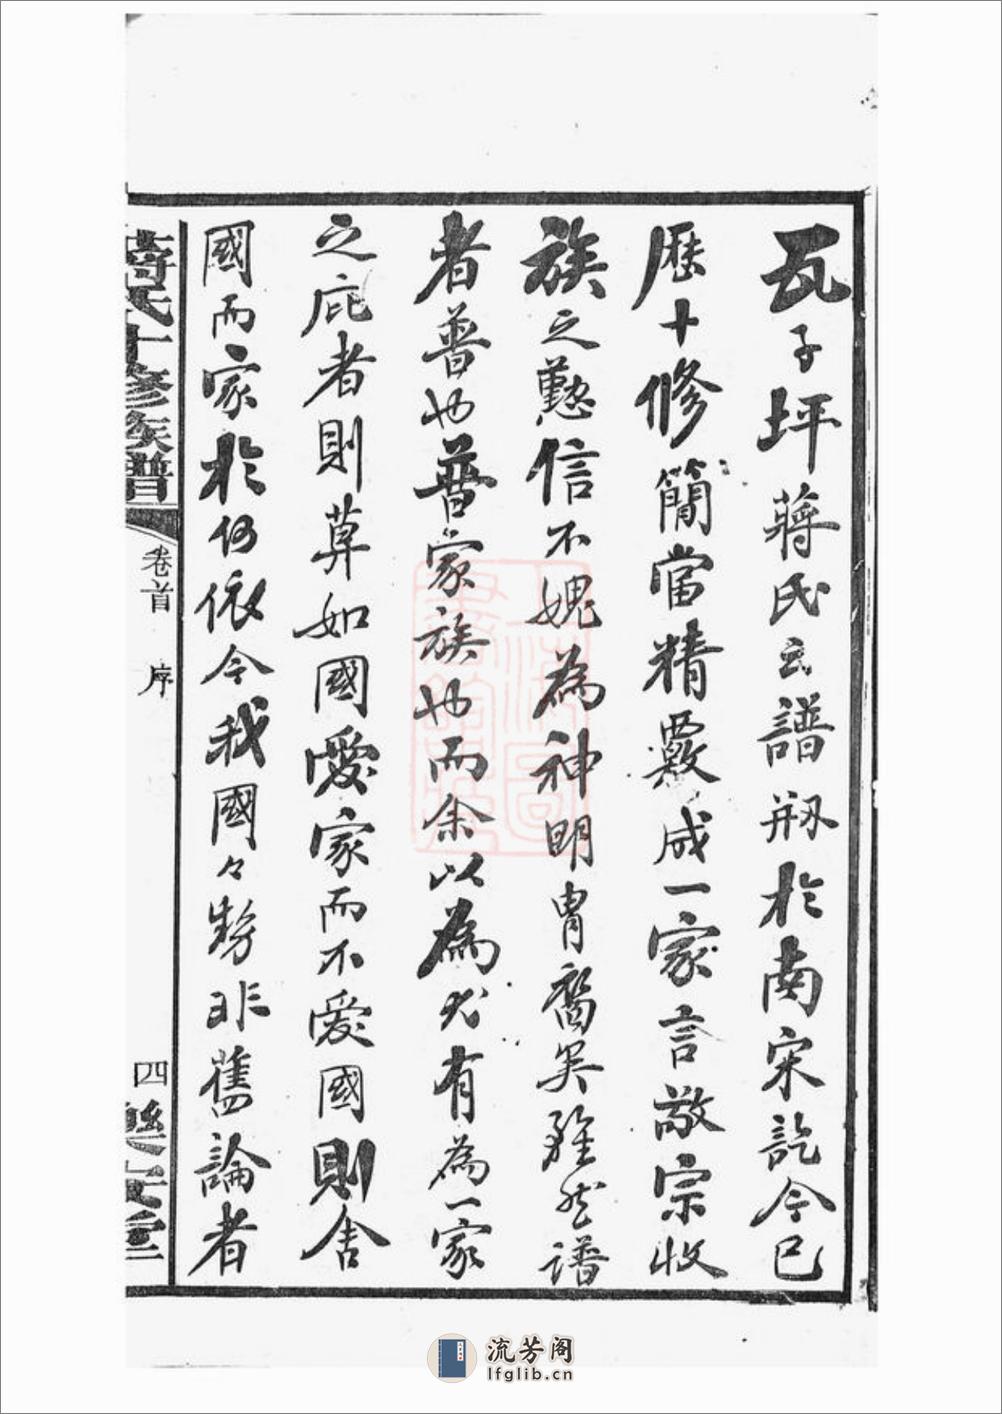 瓦子坪蔣氏之譜刱於南宋訖今已
歷十修簡當精覈成一家言敬宗收
族之懃信不媿為神明胄裔矣雖然譜
者普也普家族也而余以為大有為一家
之庇者則莫如國愛家而不愛國則舍
國而家於何依今我國々勢非舊論者
蔣氏十修族譜
卷首
序
四
樂安堂
流芳阁
lfglib.cn